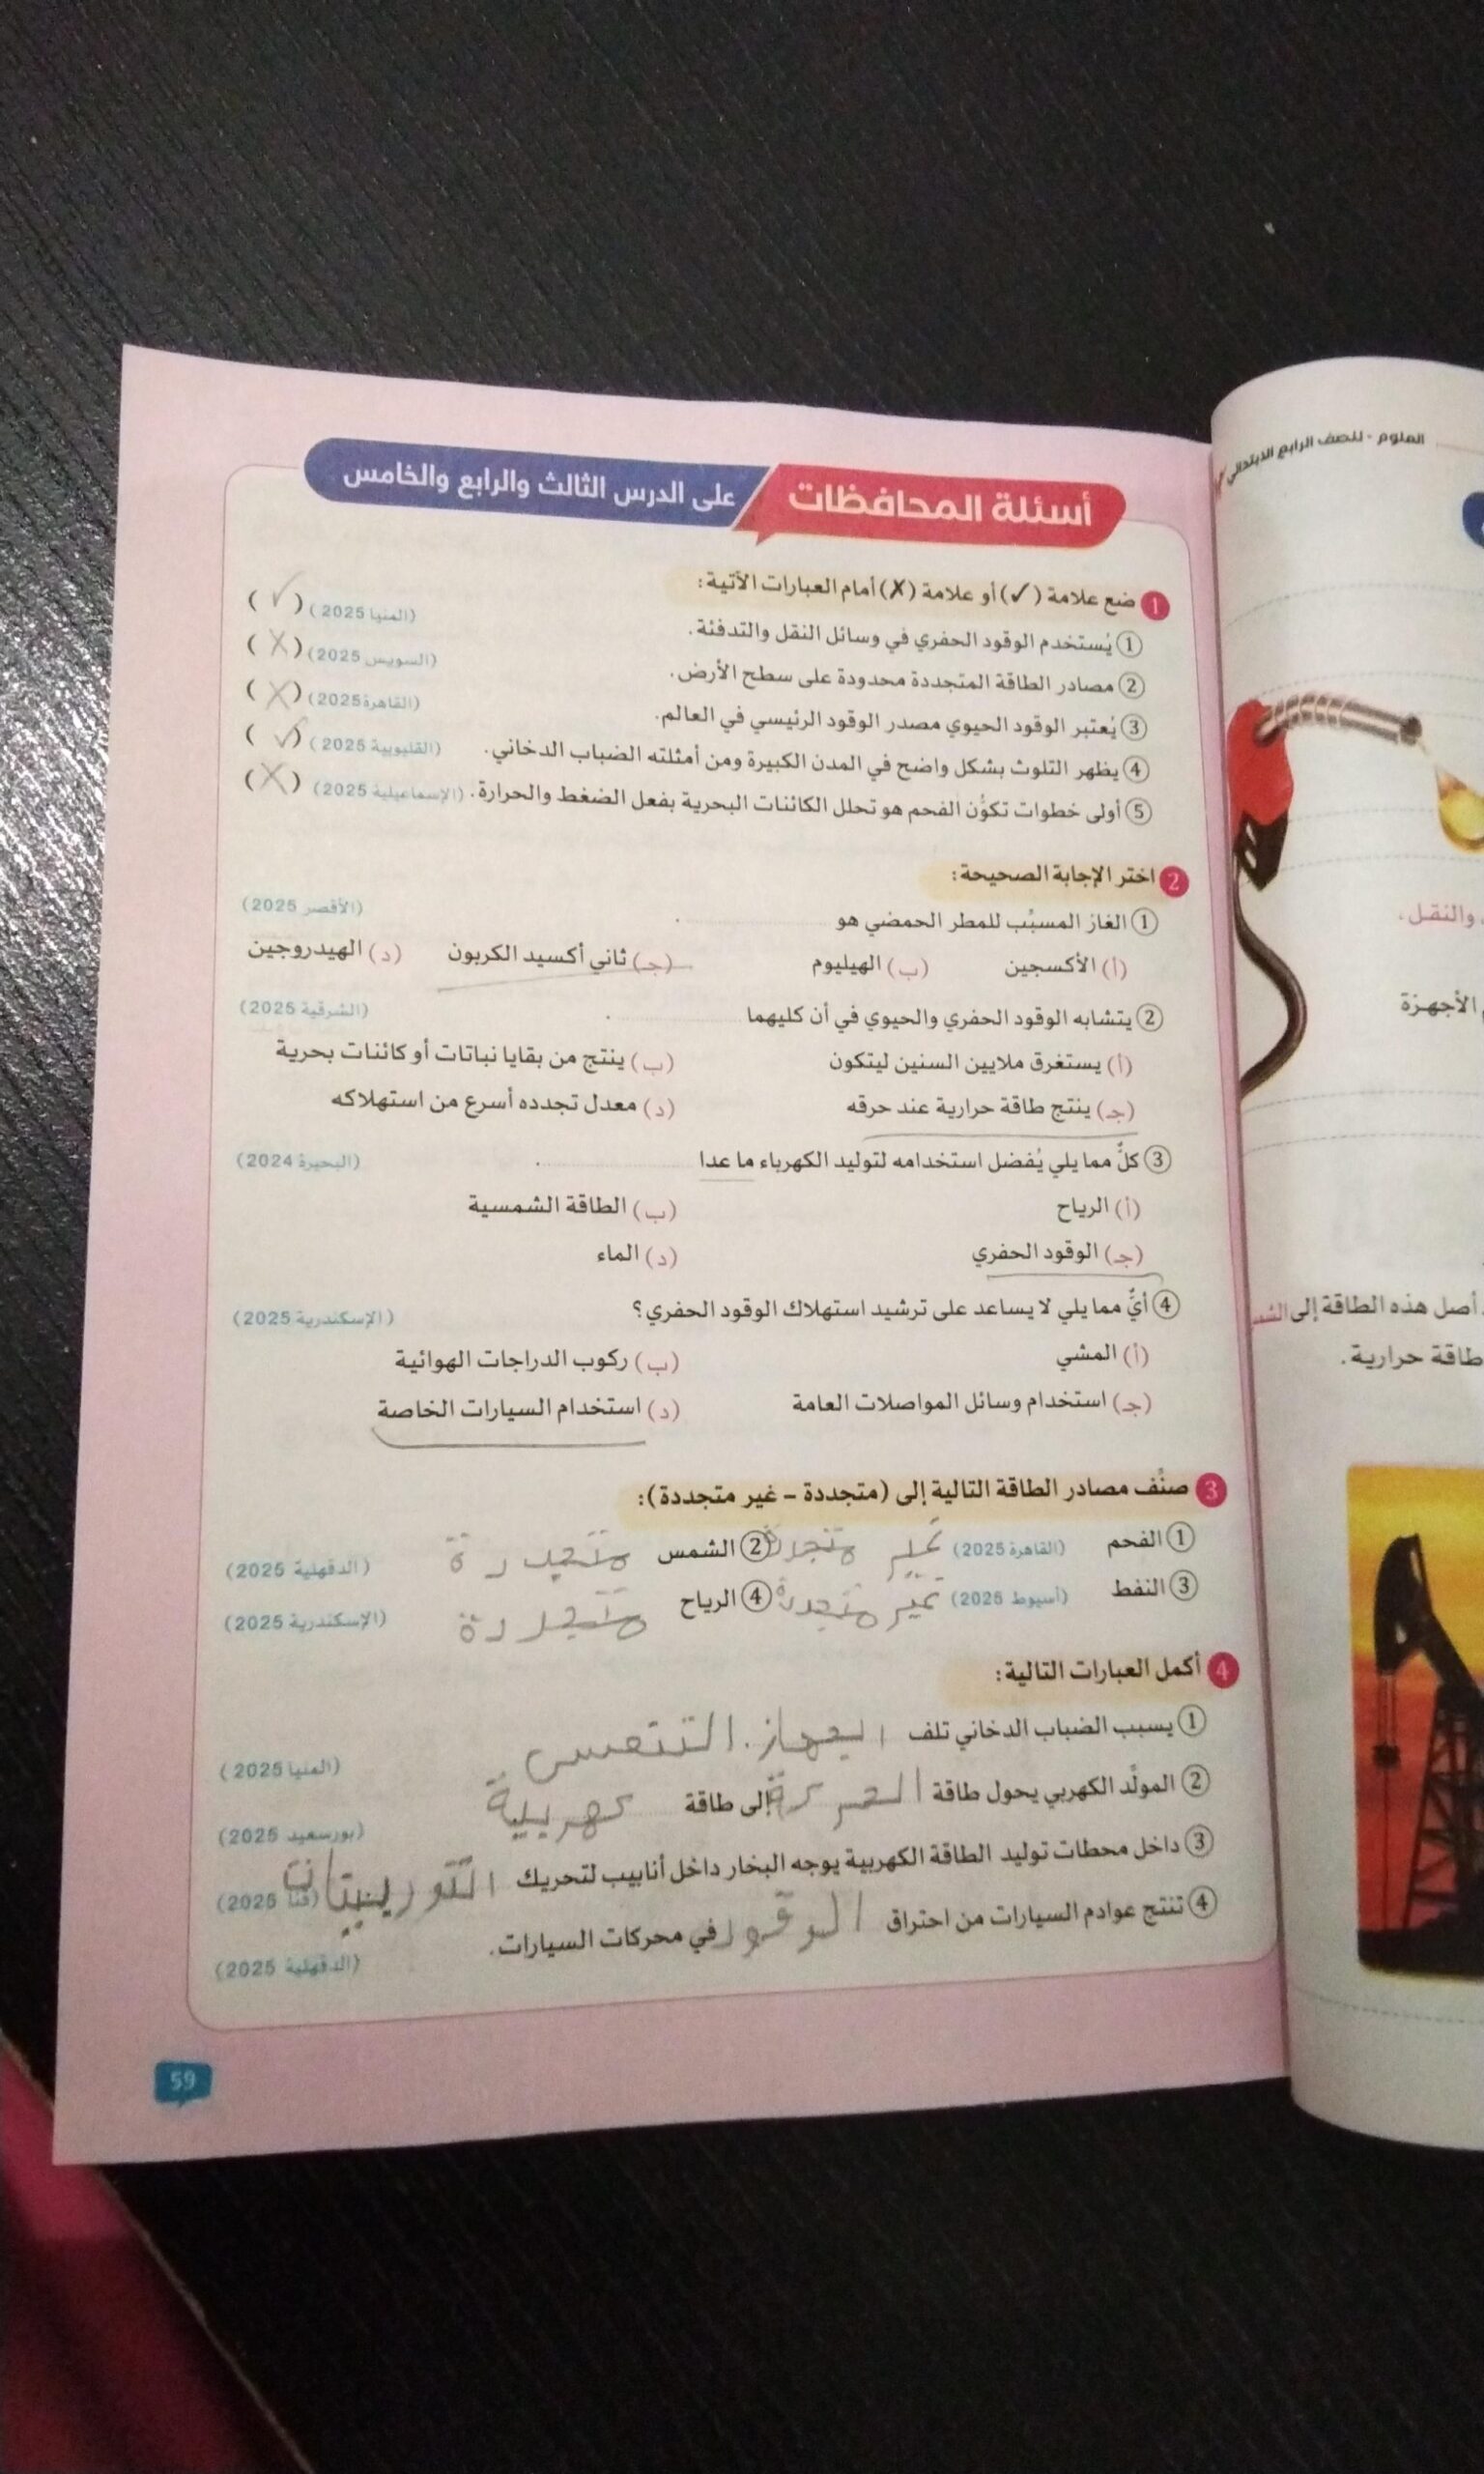 العلوم - للصف الرابع الابتدائي
أسئلة المحافظات على الدرس الثالث والرابع والخامس
1 ضع علامة (✓) أو علامة (✗) أمام العبارات الآتية:
① يُستخدم الوقود الحفري في وسائل النقل والتدفئة. (المنيا 2025) (✓)
② مصادر الطاقة المتجددة محدودة على سطح الأرض. (السويس 2025) (X)
③ يُعتبر الوقود الحيوي مصدر الوقود الرئيسي في العالم. (القاهرة 2025) (X)
④ يظهر التلوث بشكل واضح في المدن الكبيرة ومن أمثلته الضباب الدخاني. (القليوبية 2025) (✓)
⑤ أولى خطوات تكوُّن الفحم هو تحلل الكائنات البحرية بفعل الضغط والحرارة. (الإسماعيلية 2025) (X)
2 اختر الإجابة الصحيحة:
① الغاز المسبِّب للمطر الحمضي هو ........ . (الأقصر 2025)
(أ) الأكسجين (ب) الهيليوم (جـ) ثاني أكسيد الكربون (د) الهيدروجين
② يتشابه الوقود الحفري والحيوي في أن كليهما ........ . (الشرقية 2025)
(أ) يستغرق ملايين السنين ليتكون (ب) ينتج من بقايا نباتات أو كائنات بحرية
(جـ) ينتج طاقة حرارية عند حرقه (د) معدل تجدده أسرع من استهلاكه
③ كلٌّ مما يلي يُفضل استخدامه لتوليد الكهرباء ما عدا ........ . (البحيرة 2024)
(أ) الرياح (ب) الطاقة الشمسية
(جـ) الوقود الحفري (د) الماء
④ أيٌّ مما يلي لا يساعد على ترشيد استهلاك الوقود الحفري؟ (الإسكندرية 2025)
(أ) المشي (ب) ركوب الدراجات الهوائية
(جـ) استخدام وسائل المواصلات العامة (د) استخدام السيارات الخاصة
3 صنِّف مصادر الطاقة التالية إلى (متجددة – غير متجددة):
① الفحم (القاهرة 2025) غير متجددة ② الشمس متجددة (الدقهلية 2025)
③ النفط (أسيوط 2025) غير متجددة ④ الرياح متجددة (الإسكندرية 2025)
4 أكمل العبارات التالية:
① يسبب الضباب الدخاني تلف الجهاز التنفسي (المنيا 2025)
② المولِّد الكهربي يحول طاقة الحركة إلى طاقة كهربية (بورسعيد 2025)
③ داخل محطات توليد الطاقة الكهربية يوجه البخار داخل أنابيب لتحريك التوربينات (قنا 2025)
④ تنتج عوادم السيارات من احتراق الوقود في محركات السيارات. (الدقهلية 2025)
59
والنقل.
الأجهزة
أصل هذه الطاقة إلى
طاقة حرارية.